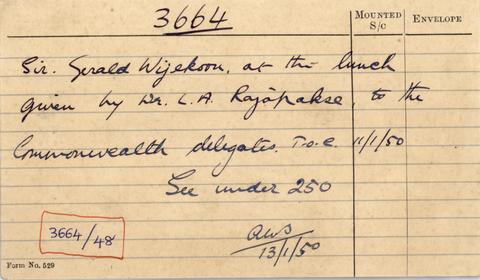 3664
MOUNTED S/C
ENVELOPE
Sir. Gerald Wijekoon, at the lunch
given by Dr. L.A. Rajapakse, to the
Commonwealth delegates. T.o.C. 11/1/50
See under 250
3664/48
13/1/50
Form No. 529